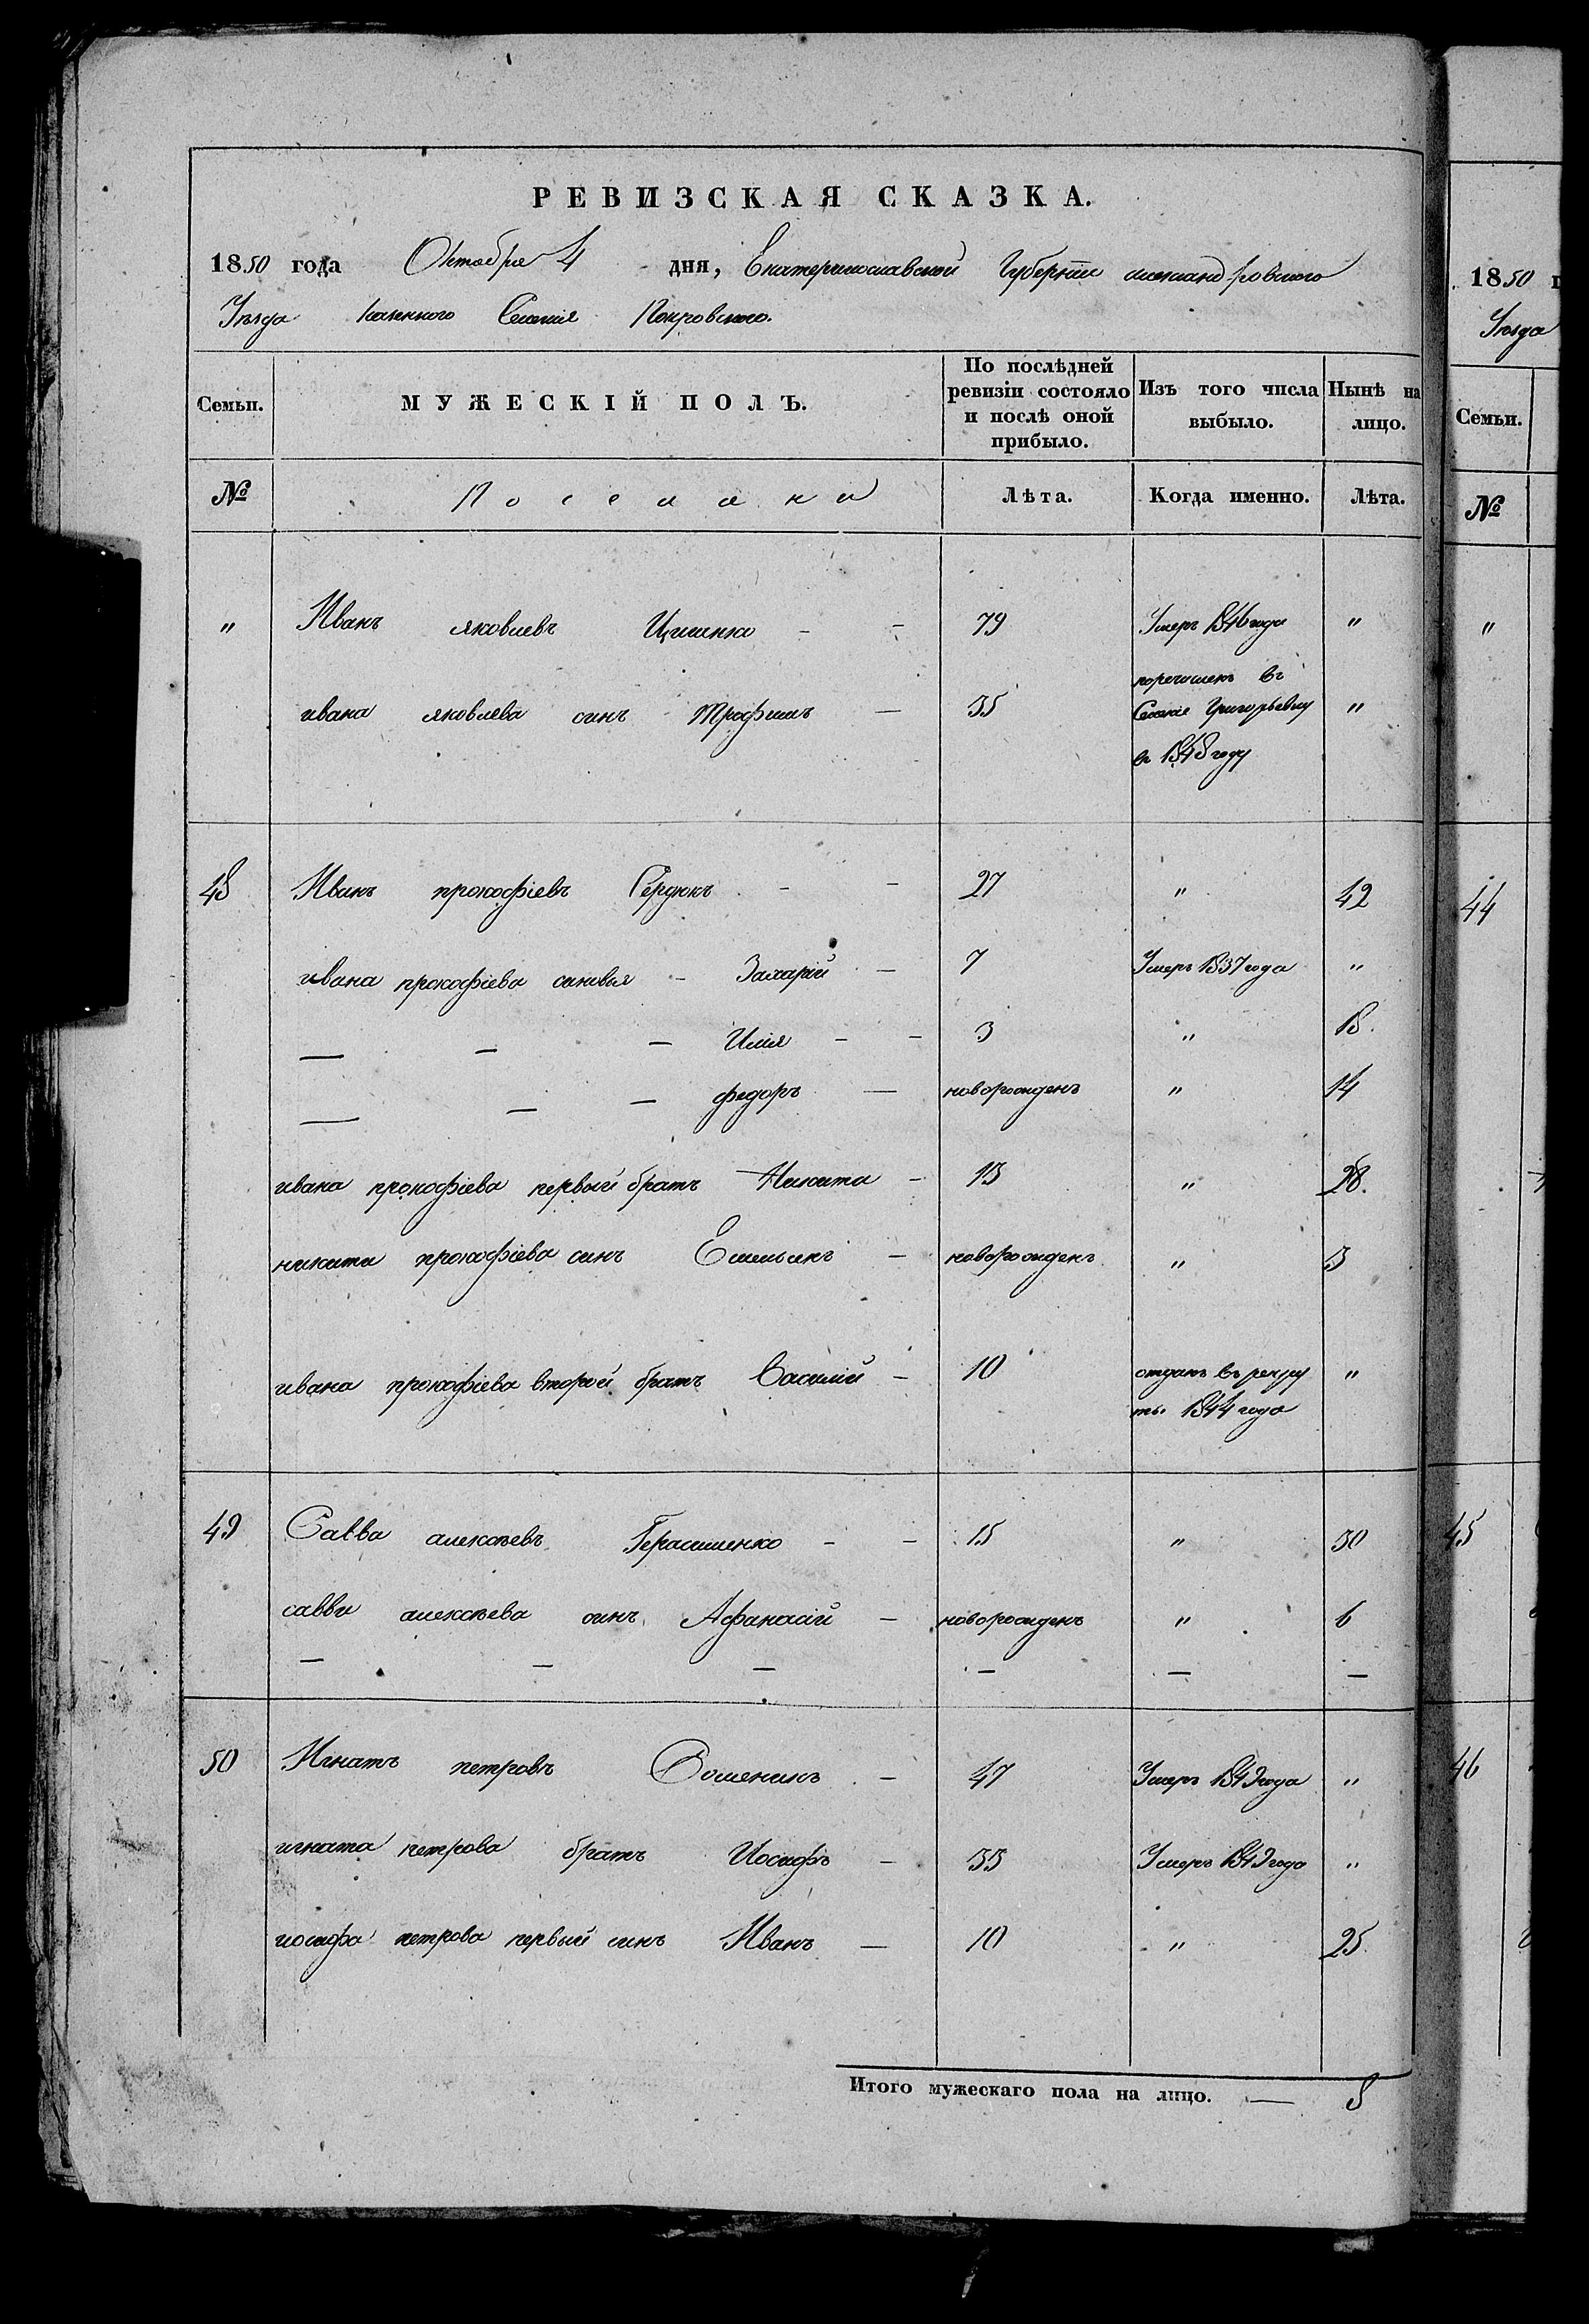 РЕВИЗСКАЯ СКАЗКА.
1850 года Октобря 4 дня, Екатеринославской Губернии александровского
Уезда казенного Селения Покровского.
Семьи. МУЖЕСКІЙ ПОЛЪ. По послѣдней ревизіи состояло и послѣ оной прибыло. Изъ того числа выбыло. Нынѣ на лицо.
№ Поселяни Лѣта. Когда именно. Лѣта.
" Иванъ яковлевъ - - 79 Умеръ 1846 года "
ивана яковлева синъ трофимъ — 35 перечисленъ въ Селение Григорьевку в 1848 году "
48 Иванъ прокофіевъ Сердюкъ - - 27 " 42
ивана прокофіева синовья - Захарій — 7 Умеръ 1837 года "
— — — Илія - - 3 " 18.
— — — федоръ — новорожденъ " 14
ивана прокофіева первый братъ Никита - 13 " 28.
никити прокофіева синъ Емельянъ - новорожденъ " 3
ивана прокофіева второй братъ Василій - 10 отданъ въ рекру
ты 1844 года "
49 Савва алексѣевъ Герасименко - - 15 " 30
савви алексѣева синъ Афанасій - новорожденъ " 6
— — — — — —
50 Игнатъ петровъ - 47 Умеръ 1849 года "
игната петрова братъ Иосифъ - 33 Умеръ 1849 года "
иосифа петрова первый синъ Иванъ — 10 " 25.
Итого мужескаго пола на лицо. — 8
1850 г
Уезда
Семьи.
№
"
44
45
46